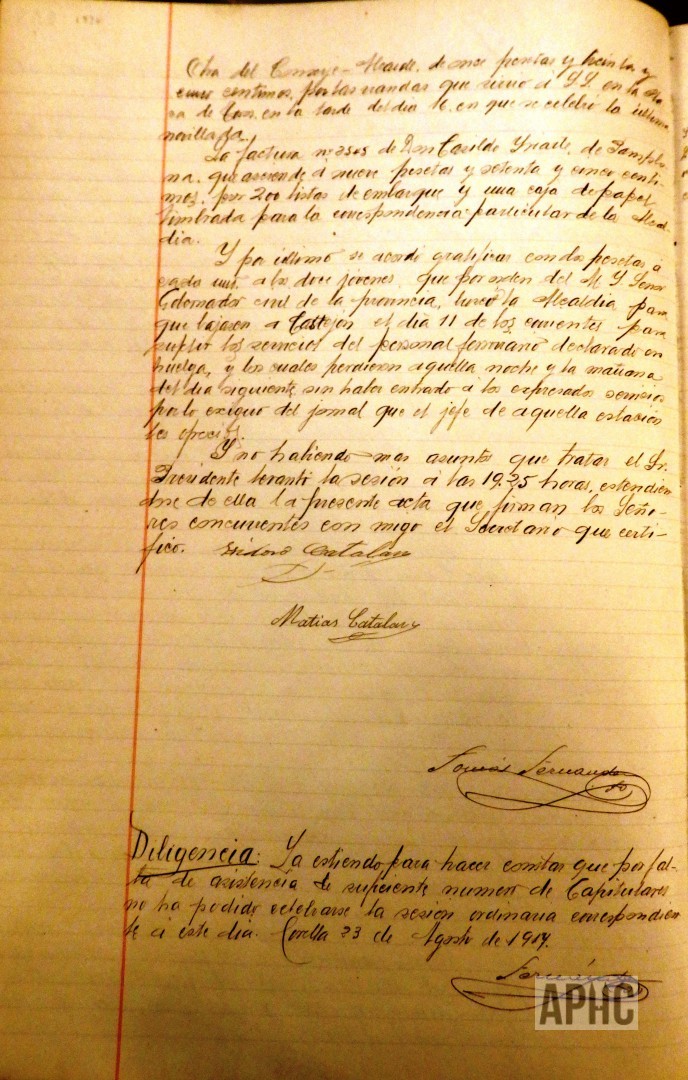 Otra del Conserje-Alcaide, de once pesetas y treinta y
cinco centimos, por las viandas que sirvió á SS. en la Pla-
za de Toros en la tarde del dia 16, en que se celebró la última
novillada.
La factura nº 2505 de Don Casildo Iriarte, de Pamplo-
na, que asciende á nueve pesetas y setenta y cinco centi-
mos, por 200 listas de embarque y una caja de papel
timbrada para la correspondencia particular de la Alcal-
dia.
Y por último se acordó gratificar con dos pesetas á
cada uno, a los doce jóvenes, que por orden del M. Y. Señor
Gobernador civil de la provincia, buscó la Alcaldia para
que bajasen a Castejón el dia 11 de los corrientes para
suplir los servicios del personal ferroviario declarado en
huelga, y los cuales perdieron aquella noche y la mañana
del dia siguiente sin haber entrado á los expresados servicios
por lo exiguo del jornal que el jefe de aquella estación
les ofreció.
Y no habiendo mas asuntos que tratar el Sr.
Presidente levantó la sesión á las 19,25 horas, estendien-
dose de ella la presente acta que firman los Seño-
res concurrentes con migo el Secretario que certi-
fico.
Isidoro Catalán
Matias Catalan
Tomás Fernandez
Diligencia: La estiendo para hacer constar que por fal-
ta de asistencia de suficiente número de Capitulares
no ha podido celebrarse la sesión ordinaria correspondien-
te á este dia. Corella 23 de Agosto de 1917.
Fernández
APHC